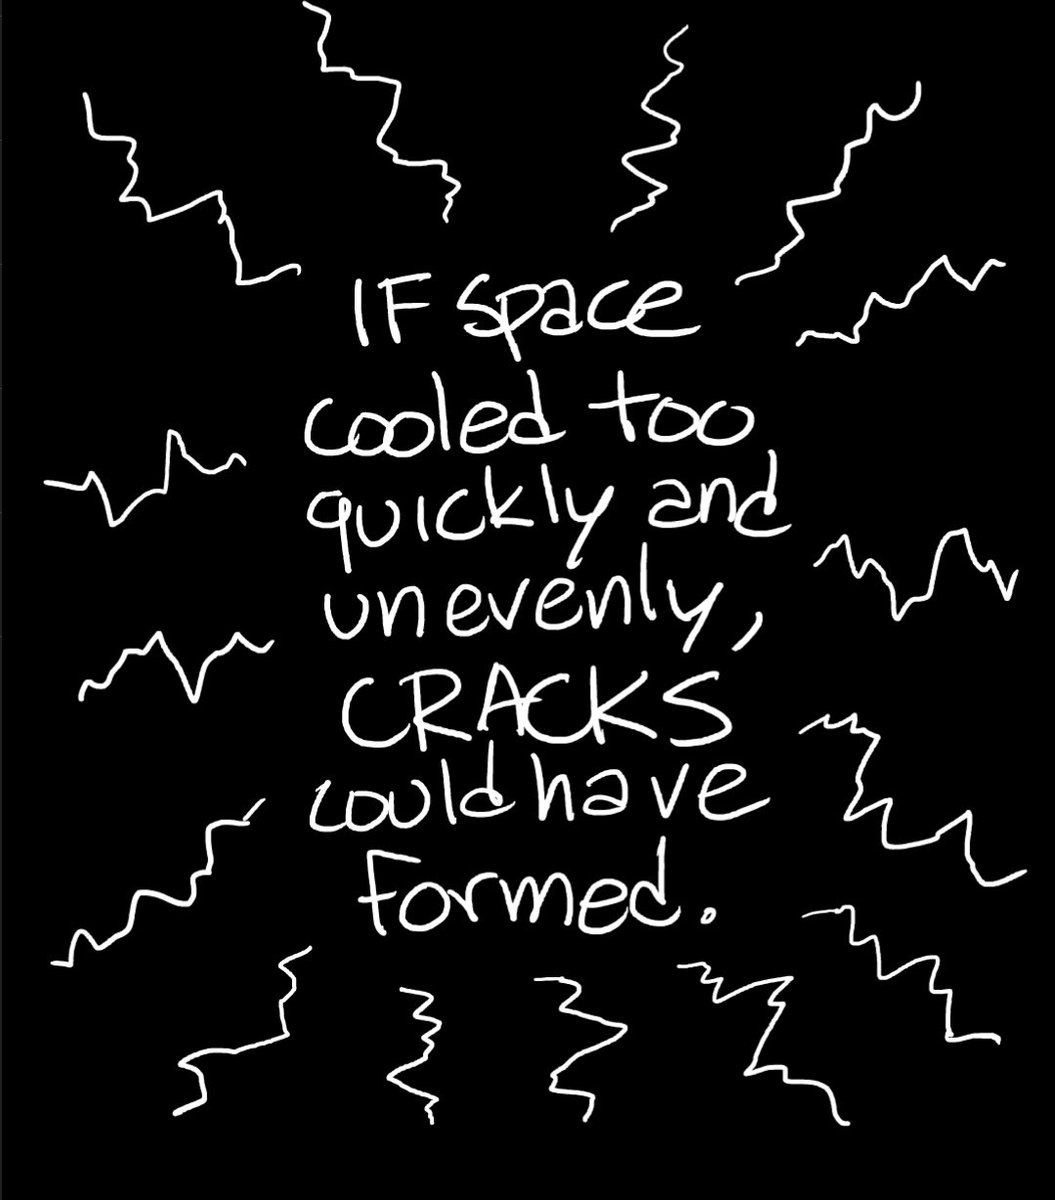 IF space
cooled too
quickly and
unevenly,
CRACKS
could have
formed.